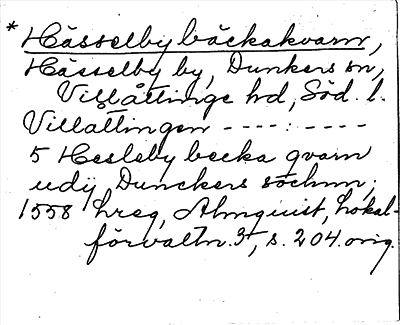 * Hässelby bäckakvarn,
Hässelby by, Dunkers sn,
Villåttinge hd, Söd. l.
Villattingen - - - - : - - - -
5 Hesleby becka qvarn
udij Dunckers sochnn;
1558 hreg, Almquist, Lokal-
förvaltn. 3, s. 204. orig.